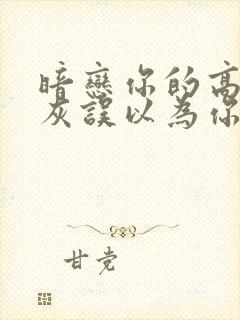 暗戀你的高
灰誤以為你
甘党